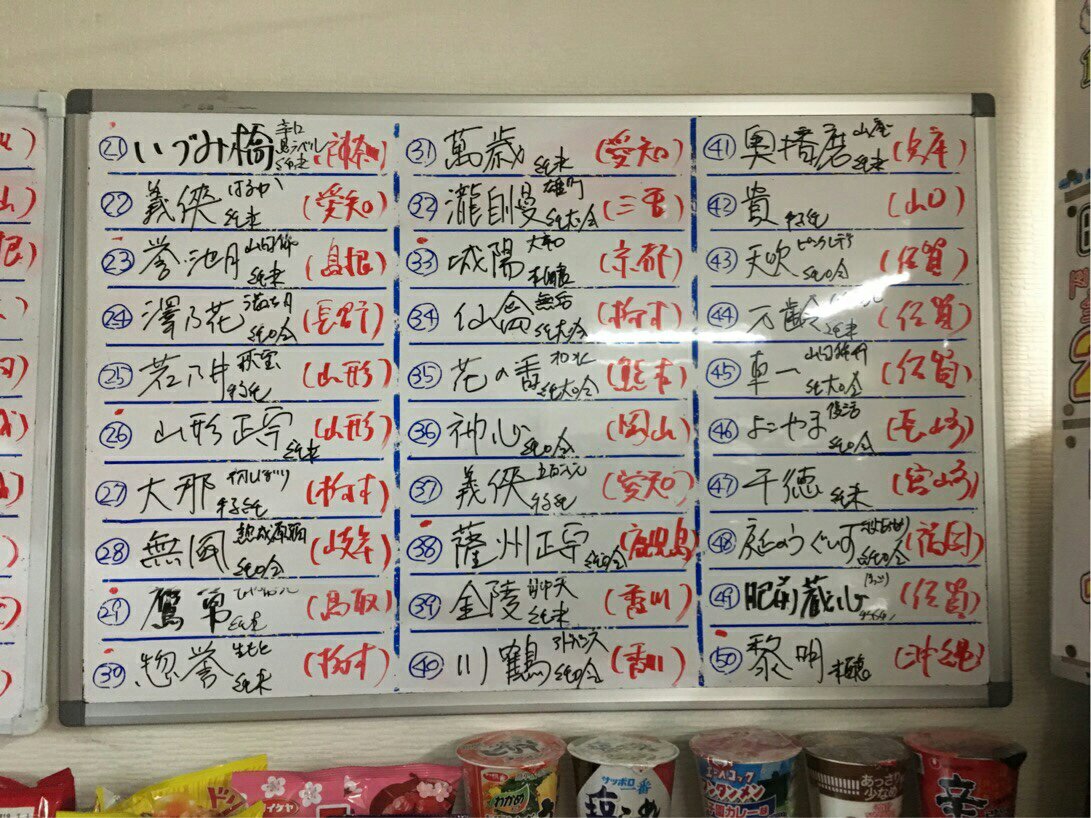 ㉑ いづみ橋 辛口 黒ラベル 純米 (神奈
㉒ 義侠 はるか 純米 (愛知)
㉓ 誉池月 山田錦 純米 (島根)
㉔ 澤乃花 純吟 (長野)
㉕ 若乃井 特純 (山形)
㉖ 山形正宗 純米 (山形)
㉗ 大那 特純 (栃木)
㉘ 無風 熟成原酒 純吟 (岐阜)
㉙ 鷹勇 純米 (鳥取)
㊴ 惣誉 生もと 純米 (栃木)
㉛ 萬歳 純米 (愛知)
㉜ 瀧自慢 雄町 純大吟 (三重)
㉝ 城陽 (京都)
㉞ 仙禽 無垢 純大吟 (栃木)
㉟ 花の香 和水 純大吟 (熊本)
㊱ 神心 純吟 (岡山)
㊲ 義侠 五百万石 特純 (愛知)
㊳ 薩州正宗 純吟 (鹿児島)
㊴ 金陵 純米 (香川)
㊵ 川鶴 純吟 (香川)
㊶ 奥播磨 山庵 純米 (兵庫)
㊸ 貴 特純 (山口)
㊸ 天吹 ピンクレディ 純吟 (佐賀)
㊹ 万齢 純米 (佐賀)
㊺ 車一 山田錦 純大吟 (佐賀)
㊻ よこやま 純吟 (長崎)
㊼ 千徳 純米 (宮崎)
㊽ 庭のうぐいす 純吟 (福岡)
㊾ 肥前蔵心 (佐賀)
㊿ 黎明 本醸 (沖縄)
わかめ
サッポロ一番
塩らーめ
エースコック
ワンタンメン
カレー味
あっさり
少なめ
辛